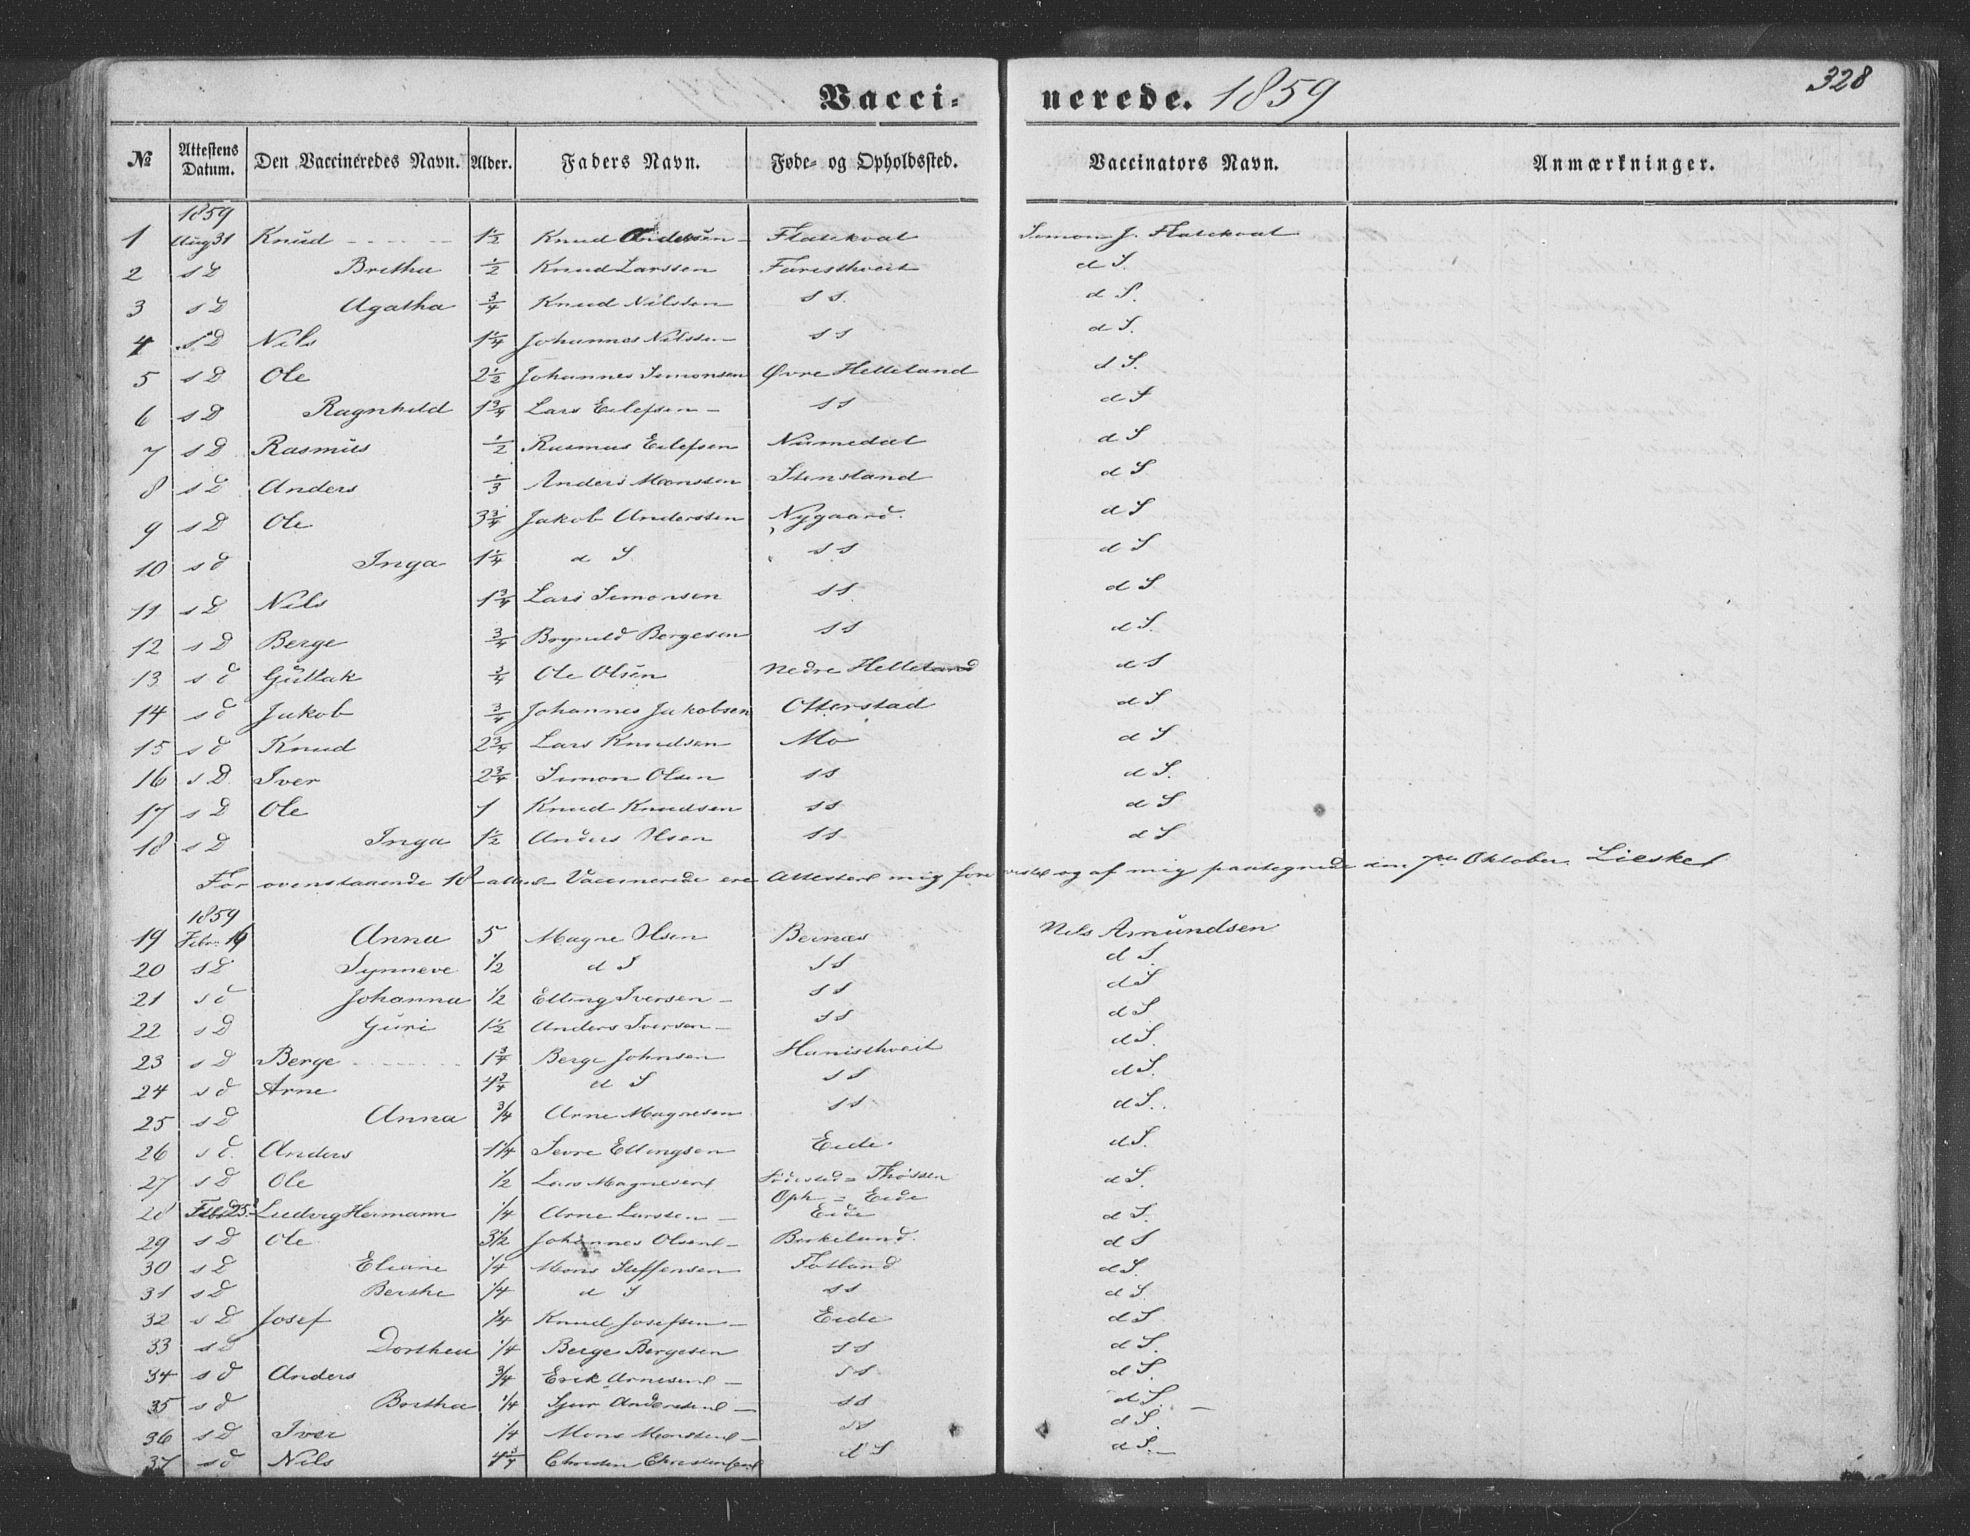 Vacci- nerede. 1859 328
№ Attestens Datum. Den Vaccineredes Navn. Alder. Faders Navn. Føde- og Opholdssted. Vaccinators Navn. Anmærkninger.
1859
1 Aug 31 Knud 1½ Knud Anderssen Flatekval Simon J. Flatekval
2 s D Bretha ½ Knud Larssen Faresthveit d S.
3 s D Agatha ¾ Knud Nilssen s s. d S.
4 s D Nils 1¼ Johannes Nilssen s s d S.
5 s D Ole 2½ Johannes Simonsen Øvre Helleland d S.
6 s D Ragnhild 1¾ Lars Eilefsen s s d S
7 s D Rasmus ½ Rasmus Eilefsen Numedal d S
8 s D Anders ⅓ Anders Monssen Stensland d S
9 s D Ole 3¾ Jakob Anderssen Nygaard. d S
10 s d Inga 1¼ d S s s d S
11 s D Nils 1¾ Lars Simonsen s s d S.
12 s D Berge ¾ Brynild Bergesen s s d S.
13 s d Gullak ¾ Ole Olsen Nedre Helleland d S
14 s d Jakob ¾ Johannes Jakobsen Otterstad d S
15 s d Knud 2¾ Lars Knudsen Mo d S
16 s D Iver 2¾ Simon Olsen s s d S.
17 s D Ole 1 Knud Knudsen s s d S
18 s D Inga 1½ Anders Olsen s s d S
For ovenstaaende 18 atten Vaccinerede ere Attester mig forevist og af mig paategnede den 7de Oktober Lieske
1859
19 Febr. 16 Anna 5 Magne Olsen Bernæs Nils Amundsen
20 s D Synneve ½ d S s s d S.
21 s d Johanna ½ Elling Iversen s s d S
22 s D Guri 1½ Anders Iversen s s d S.
23 s D Berge 1¾ Berge Johnsen Hanisthveit d S.
24 s d Arne 4¾ d S s s d S.
25 s D Anna ¾ Arne Magnesen s s d S.
26 s d. Anders 1¼ Sevre Ellingsen Eide. d S.
27 s D Ole ½ Lars Magnesen Fødested = Thøssen d S.
Oph = Eide
28 Febr 25 Ludvig Hermann ¼ Arne Larssen Eide d S.
29 s D Ole 3½ Johannes Olsen Birkeland. d S
30 s D Eliane ¼ Mons Steffensen Fotland d S.
31 s D Berthe ¼ d S s s d S.
32 s D Josef ¼ Knud Josefsen Eide d S
33 s D Dorthea ¼ Berge Bergesen s s d S.
34 s d Anders ¾ Erik Arnesen s s d S.
35 s d Bretha ¼ Sjur Andersen s s d S.
36 s D Iver ¼ Mons Monssen s s d S.
37 s d Nils 4¾ Christen Christensen d S d S.